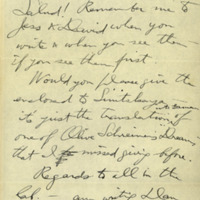 Salud! Remember me to
Jess & David when you
write or when you see them
if you see them first.
Would you please give the
enclosed to
is just the translation of
one of Olive Schreiner's Dreams
that I missed giving before.
Regards to all in the
Lab. — am writing Dean